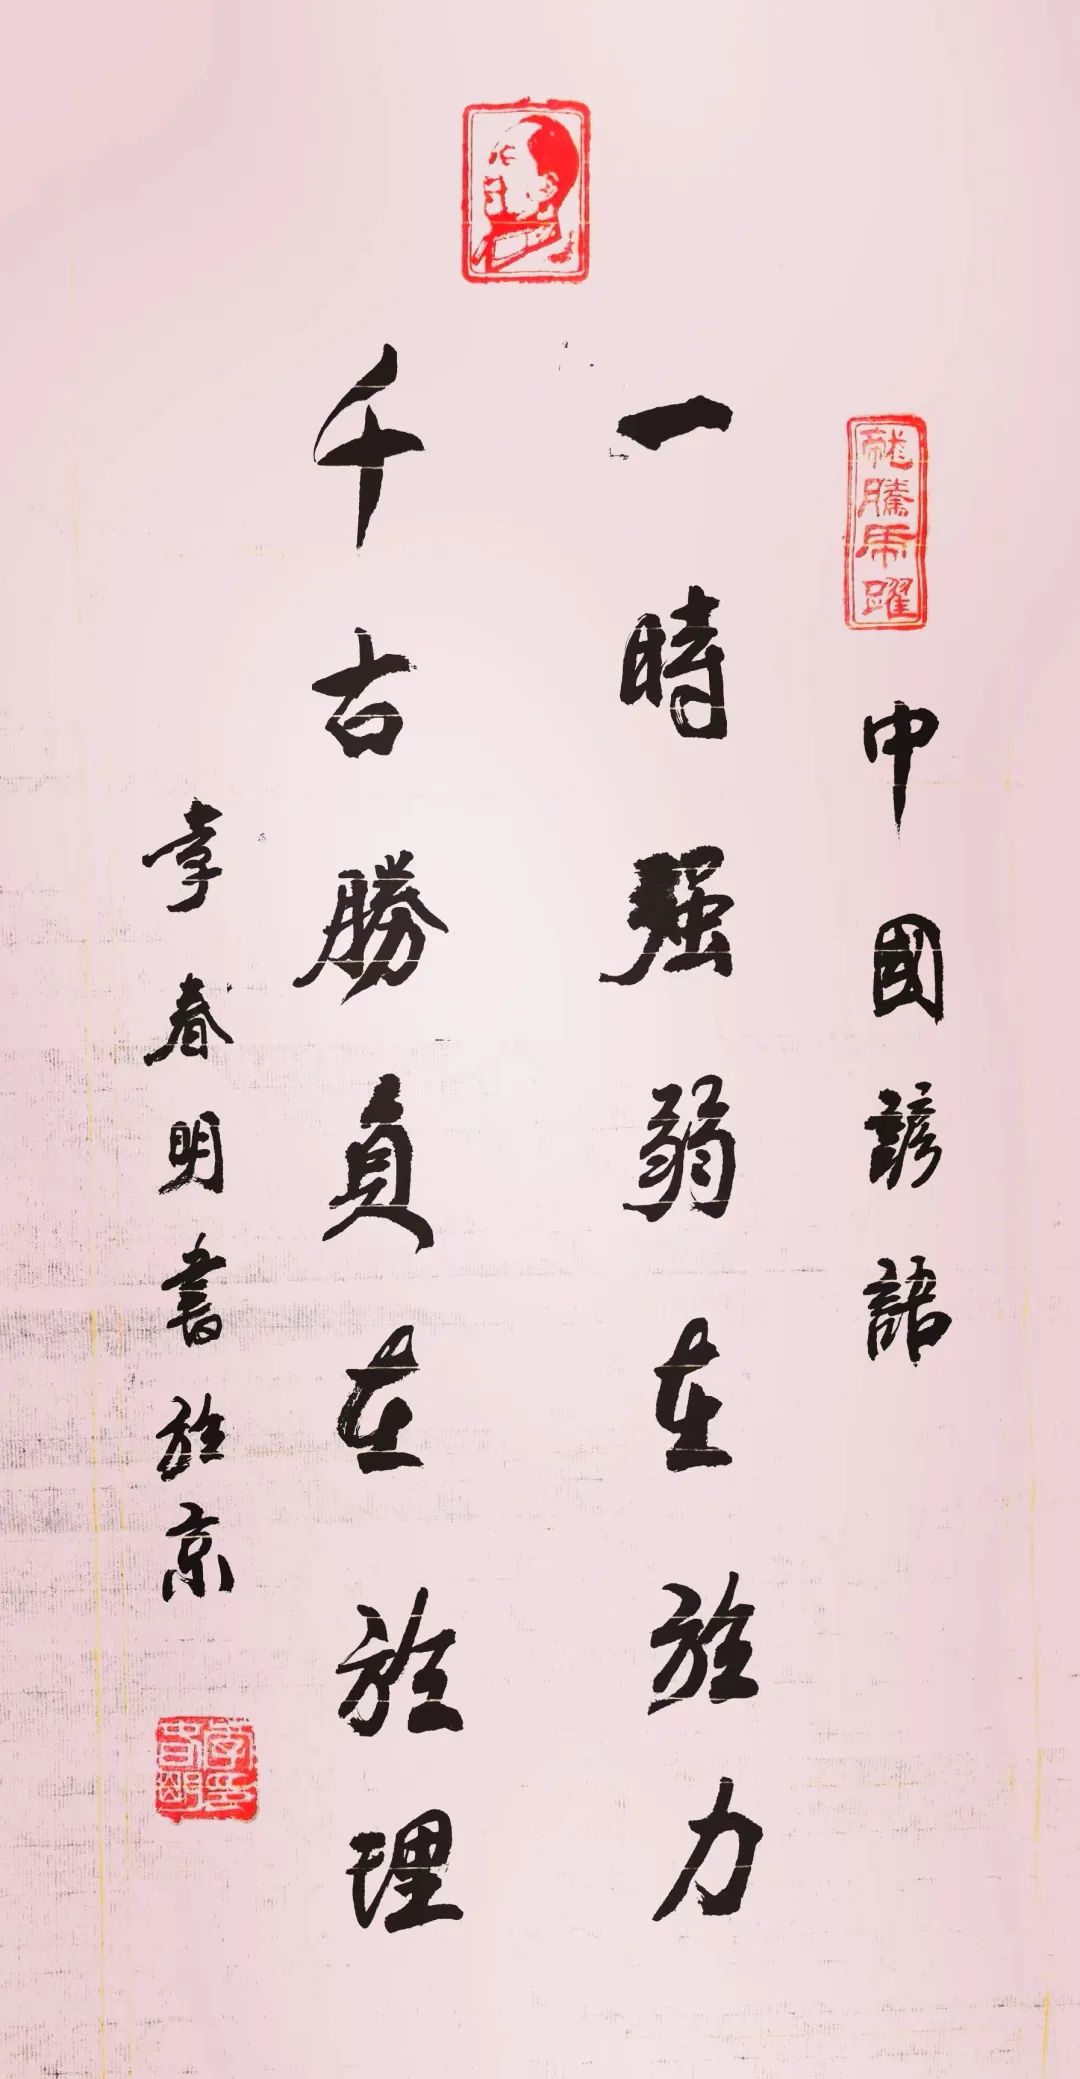 龍騰虎躍
中國諺語
一時强弱在於力
千古勝負在於理
李春明書於京
李印春明